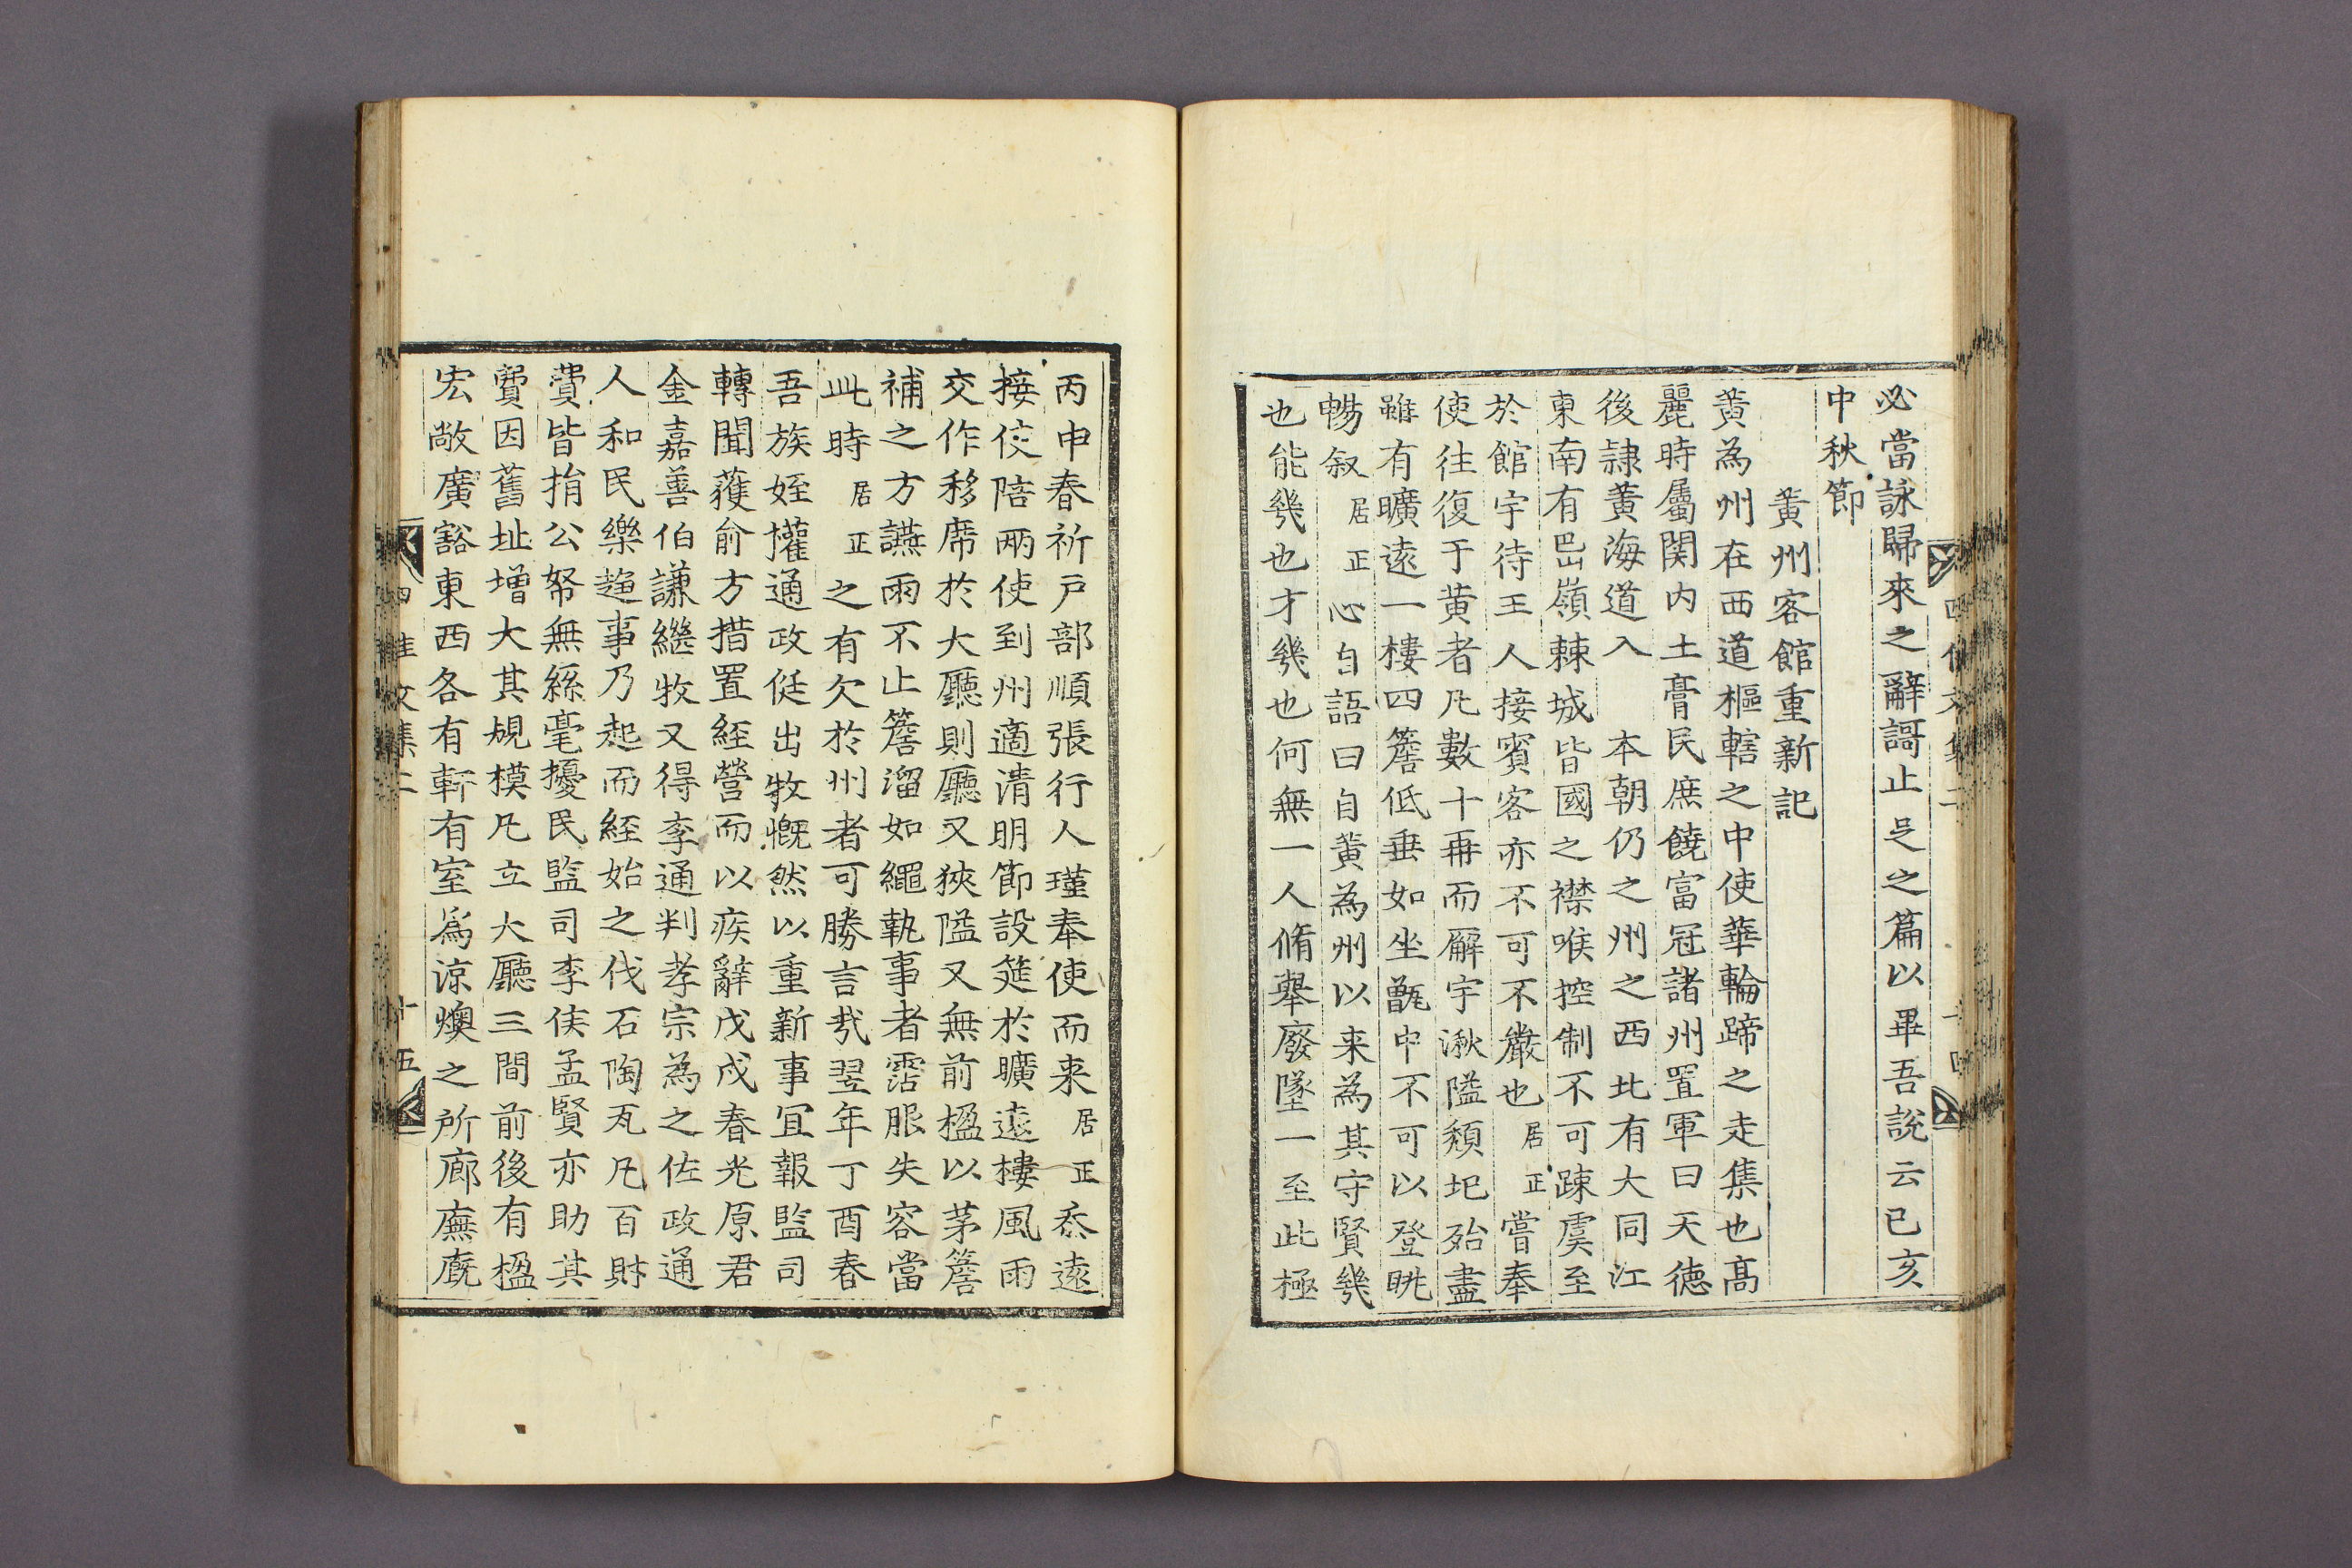 必當詠歸來之辭謌止足之篇以畢吾說云己亥
中秋節
黃州客館重新記
黃為州在西道樞轄之中使華輪蹄之走集也髙
麗時屬関内土膏民庶饒富冠諸州置軍曰天德
後隷黃海道入 本朝仍之州之西北有大同江
東南有岊嶺棘城皆國之襟喉控制不可踈虞至
於館宇待王人接賓客亦不可不嚴也居正嘗奉
使往復于黃者凡數十再而廨宇湫隘頹圮殆盡
雖有曠遠一樓四簷低垂如坐甑中不可以登眺
暢叙居正心自語曰自黃為州以来為其守賢幾
也能幾也才幾也何無一人脩擧廢墜一至此極
四佳文集二
十四
丙申春祈戶部順張行人瑾奉使而来居正忝遠
接使陪兩使到州適清明節設筵於曠遠樓風雨
交作移席於大廳則廳又狹隘又無前楹以茅簷
補之方讌雨不止簷溜如繩執事者霑服失容當
此時居正之有欠於州者可勝言㦲翌年丁酉春
吾族姪權通政侹出牧慨然以重新事冝報監司
轉聞蒦俞方措置経營而以疾辭戊戌春光原君
金嘉善伯謙繼牧又得李通判孝宗為之佐政通
人和民樂趍事乃起而経始之伐石陶瓦凡百財
費皆捐公帑無絲毫擾民監司李侯孟賢亦助其
費因舊址增大其規模凡立大廳三間前後有楹
宏敞廣豁東西各有軒有室爲涼燠之所廊廡廐
四佳文集二
十五